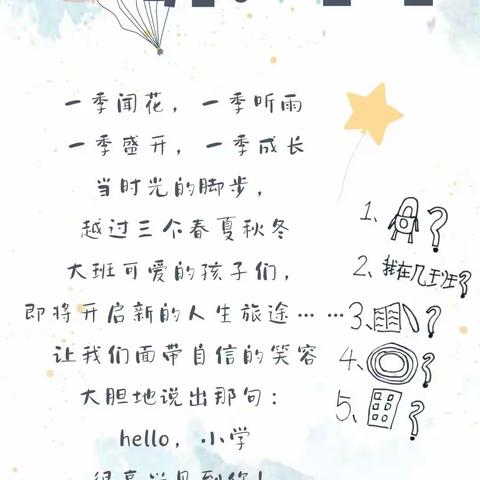 一季闻花，一季听雨
一季盛开，一季成长
当时光的脚步，
越过三个春夏秋冬
大班可爱的孩子们，
即将开启新的人生旅途……
让我们面带自信的笑容
大胆地说出那句：
hello，小学
很高兴见到你！
1、？
2、我在几班？
3、？
4、？
5、？